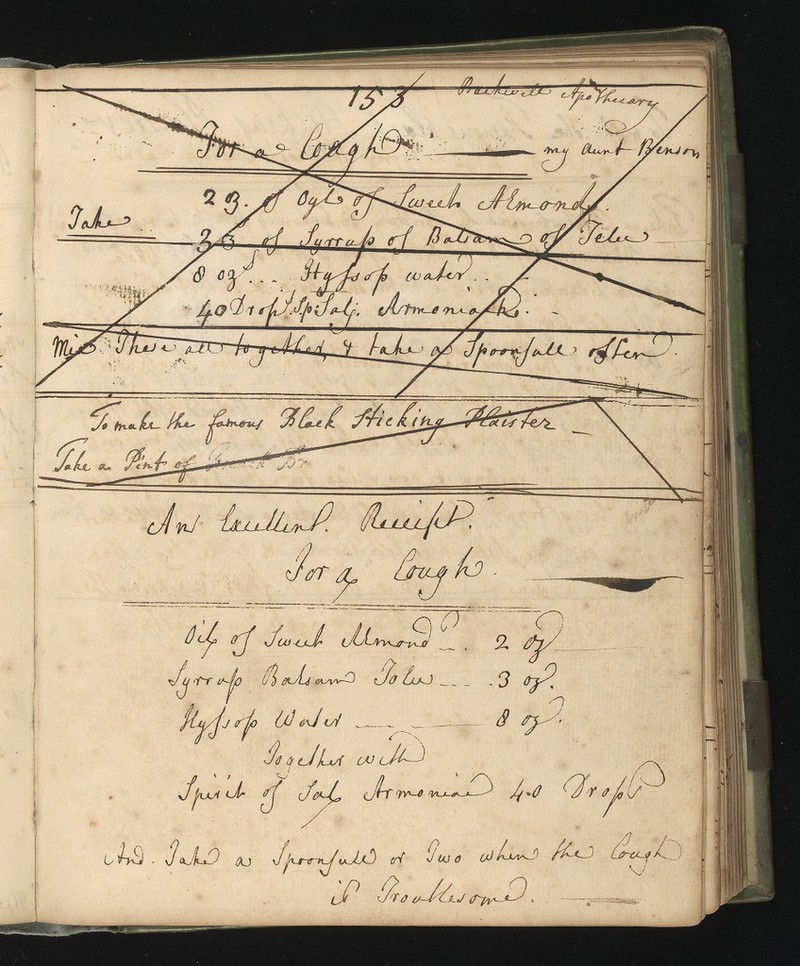 153
Backwell Apothecary
For a Cough my aunt Benson
Take 2 ʒ. of Oyl of Sweet Almonds.
3 ʒ of Syrrup of Balsam of Tolu
8 ozs. .. Hyssop water ..
40 Drops. Spt Sal. Armoniack.
Mix These all together, & take a Spoonfull often.
To make the famous Black Sticking Plaister
Take a Pint of
An Excellent. Receipt.
For a Cough
Oil of Sweet Almonds .. 2 oz
Syrrup Balsam Tolu .. 3 oz.
Hyssop Water 8 oz.
Together with
Spirit of Sal Armoniac 40 Drops
And. Take a Spoonfull or Two when the Cough
is Troublesome.